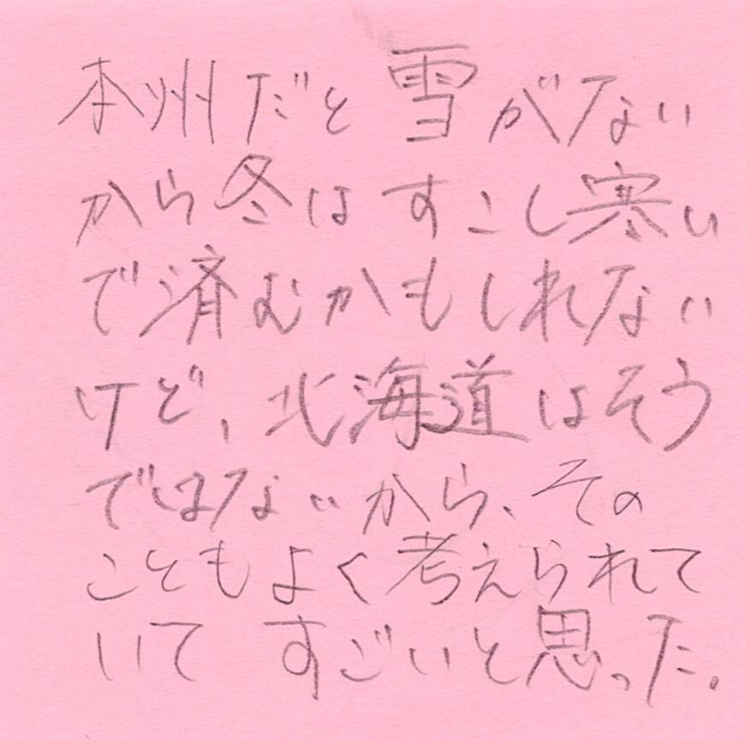 本州だと雪がない
から冬はすこし寒い
で済むかもしれない
けど、北海道はそう
ではないから、その
こともよく考えられて
いて すごいと思った。